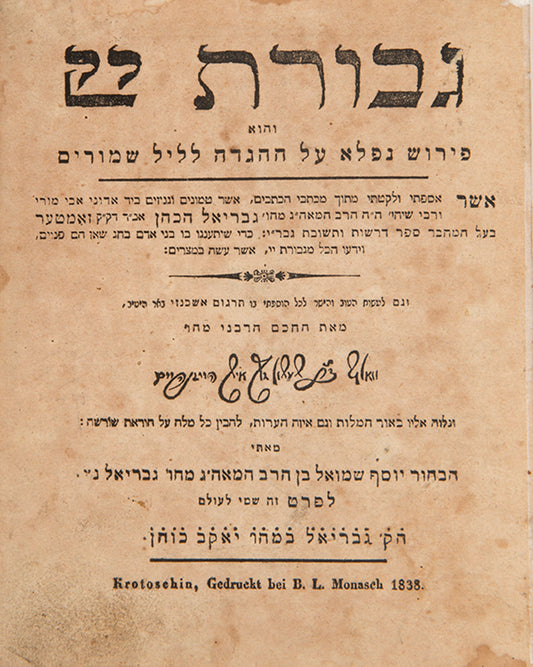 גבורת
והוא
פירוש נפלא על ההגדה לליל שמורים
אשר אספתי ולקטתי מתוך מכתבי הכתבים, אשר טמונים וגנוזים ביד אדוני אבי מורי
ורבי שיחי׳ ה״ה הרב המאה״ג מהו׳ גבריאל הכהן אב״ד דק״ק זאמטער
בעל המחבר ספר דרשות ותשובת גכר״י: כדי שיתענגו בו בני אדם בחג שאז הם פנויים,
וידעו הכל מגבורת יי, אשר עשה במצרים:
וגם לעשות הטוב והישר לכל הוספתי בו תרגום אשכנזי באר היטיב,
מאת החכם הרבני מהו׳
היידנהיים
ונלוה אליו באור המלות וגם איזה הערות, להבין כל מלה על הוראת שרשה:
מאתי
הבחור יוסף שמואל בן הרב המאה״ג מהו׳ גבריאל נ״י
לפרט זה שמי לעולם
הק׳ גבריאל במהו׳ יאקב כוהן.
Krotoschin, Gedruckt bei B. L. Monasch 1838.